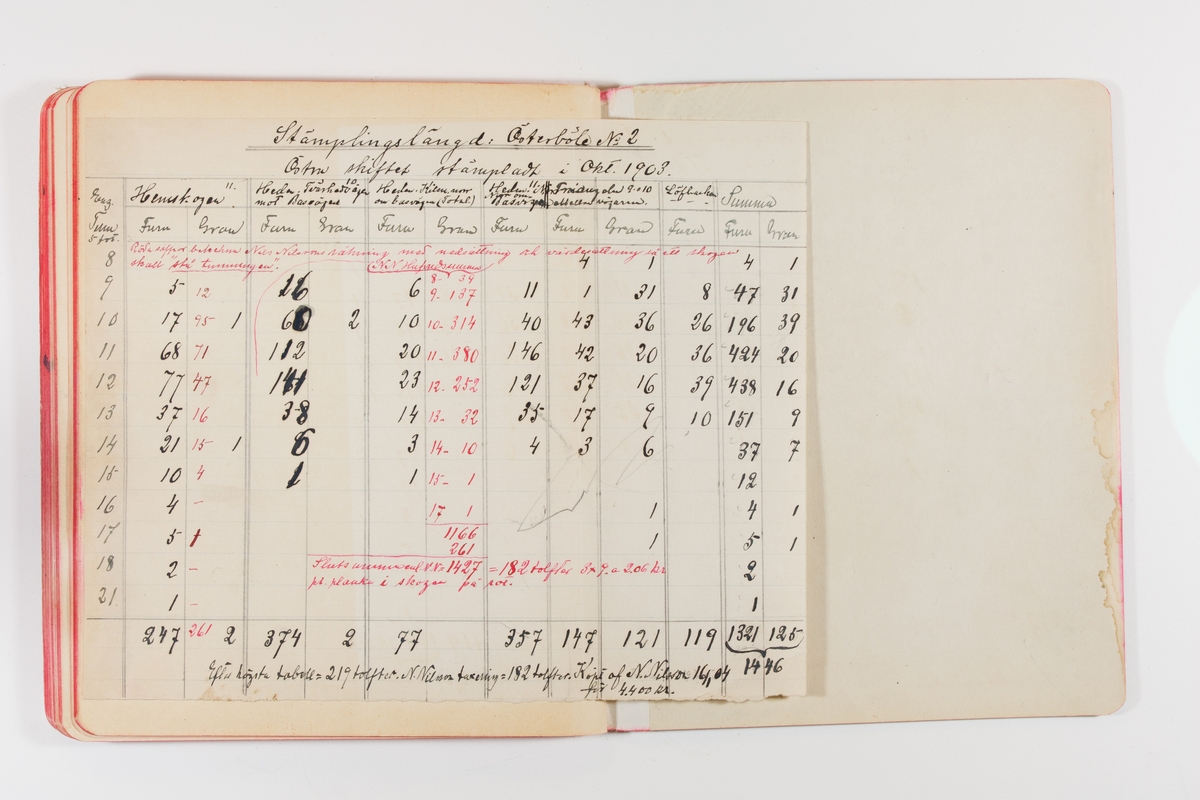 Stämplingslängd: Österböle No 2
Östra skiftet stämpladt i Okt. 1903.
Eng. Tum 5 fot. Hemskogen 11. Heden, mot Basvägen 10 Heden, norr om basvägen (Total.) Heden 11 Norr om Basvägen vägarne. Löfbacken Summa
Furu Gran Furu Gran Furu Gran Furu Furu Gran Furu Furu Gran
Röda siffror beteckna Nils Nilsons räkning med nedsättning och värdesättning så att skogen
8 skall "stå tumningen". N.N. Hufvudsumma 4 1 4 1
8- 39
9 5 12 26 6 9- 137 11 1 31 8 47 31
10 17 95 1 60 2 10 10- 314 40 43 36 26 196 39
11 68 71 112 20 11- 380 146 42 20 36 424 20
12 77 47 141 23 12- 252 121 37 16 39 438 16
13 37 16 38 14 13- 32 35 17 9 10 151 9
14 21 15 1 6 3 14- 10 4 3 6 37 7
15 10 4 1 1 15- 1 12
16 4 - 17 1 1 4 1
17 5 1 1166 1 5 1
261
18 2 - Slutsumma enl. N.N. 1427 = 182 tolfter 3x9 a 2.06 kr 2
pr. planka i skogen på rot.
21 1 - 1
247 261 2 374 2 77 357 147 121 119 1321 125
1446
Efter högsta tabell = 219 tolfter. N. Nilsson taxering = 182 tolfter. Köpt af N. Nilsson 16/1 04
för 4.400 kr.